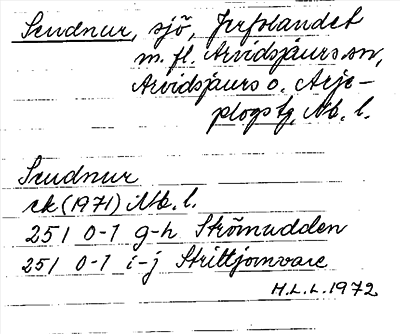 Seudnur, sjö, Jerfolandet
m. fl. Arvidsjaurs sn,
Arvidsjaurs o. Arje-
plogs tg, Nb. l.
Seudnur
ek (1971) Nb. l.
25 I 0-1 g-h Strömudden
25 I 0-1 i-j Strittjomvare
H.L.L. 1972